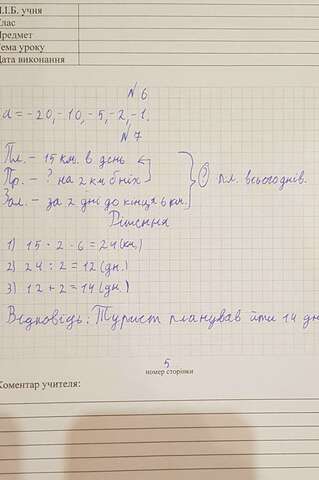 П.І.Б. учня
Клас
Предмет
Тема уроку
Дата виконання
№ 6
a = -20, -10, -5, -2, -1.
№ 7
Пл. - 15 км. в день
Пр. - ? на 2 км б ніж
? пл. всього днів.
Зал. - за 2 дні до кінця 6 км.
Рішення
1) 15 · 2 - 6 = 24 (км.)
2) 24 : 2 = 12 (дн.)
3) 12 + 2 = 14 (дн.)
Відповідь: Турист планував йти 14 дн
5
номер сторінки
Коментар учителя: